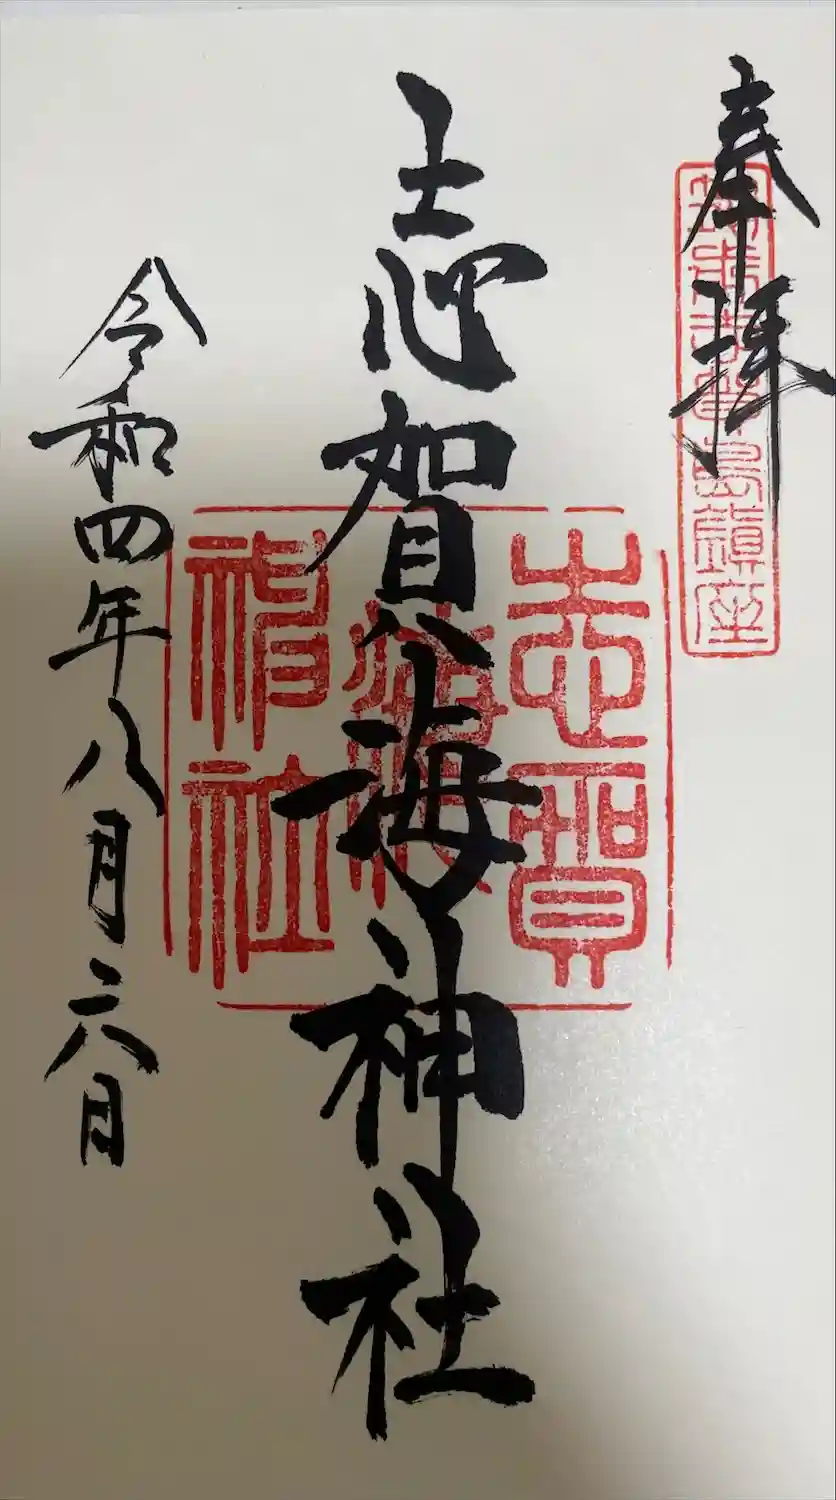 奉拝
志賀海神社
志賀海神社
令和四年八月六日